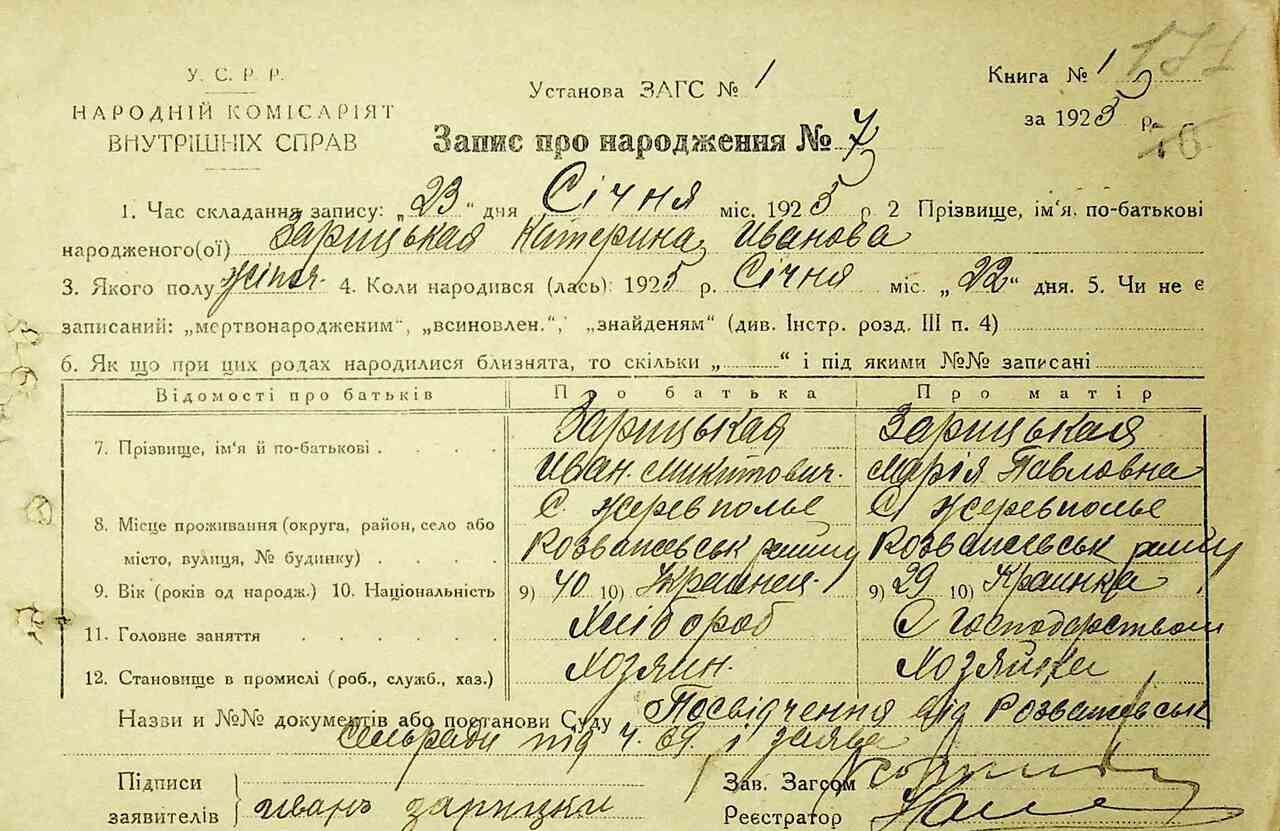 171
У. С. Р. Р.
НАРОДНІЙ КОМІСАРІЯТ
ВНУТРІШНІХ СПРАВ
Установа ЗАГС № 1
Книга № 1
за 1925 р.
76
Запис про народження № 7
1. Час складання запису: „23" дня Січня міс. 1925 р. 2 Прізвище, ім'я, по-батькові
народженого(ої) Зарицькая Катерина Иванова
3. Якого полу жіноч. 4. Коли народився (лась): 1925 р. Січня міс. „22" дня. 5. Чи не є
записаний: „мертвонародженим", „всиновлен.", „знайденям" (див. Інстр. розд. III п. 4)
6. Як що при цих родах народилися близнята, то скільки „ " і під якими №№ записані
Відомості про батьків Про батька Про матір
7. Прізвище, ім'я й по-батькові Зарицькая Зарицькая
Иван Микитович. Марія Павловна
8. Місце проживання (округа, район, село або С. Жеревполье С. Жеревполье
місто, вулиця, № будинку) Розважевськ району Розважевськ району
9. Вік (років од народж.) 10. Національність 9) 40 10) 9) 29 10) Краинка
11. Головне заняття Хлібороб С Господарством
12. Становище в промислі (роб., служб., хаз.) Хозяин. Хозяйка
Назви и №№ документів або постанови Суду Посвідчення від Розважевськ
Сельради під ч. 69. і заява
Підписи
заявителів Иванъ зарицки
Зав. Загсом
Реєстратор